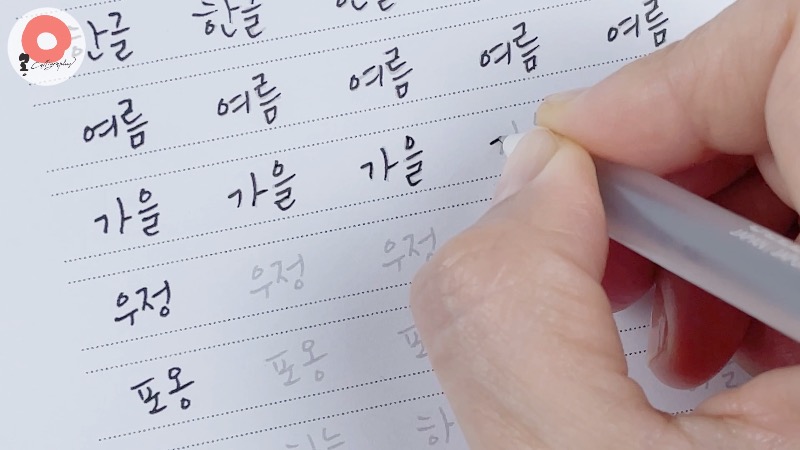 한글 한글
여름 여름 여름 여름 여름
가을 가을 가을
우정 우정 우정
포옹 포옹